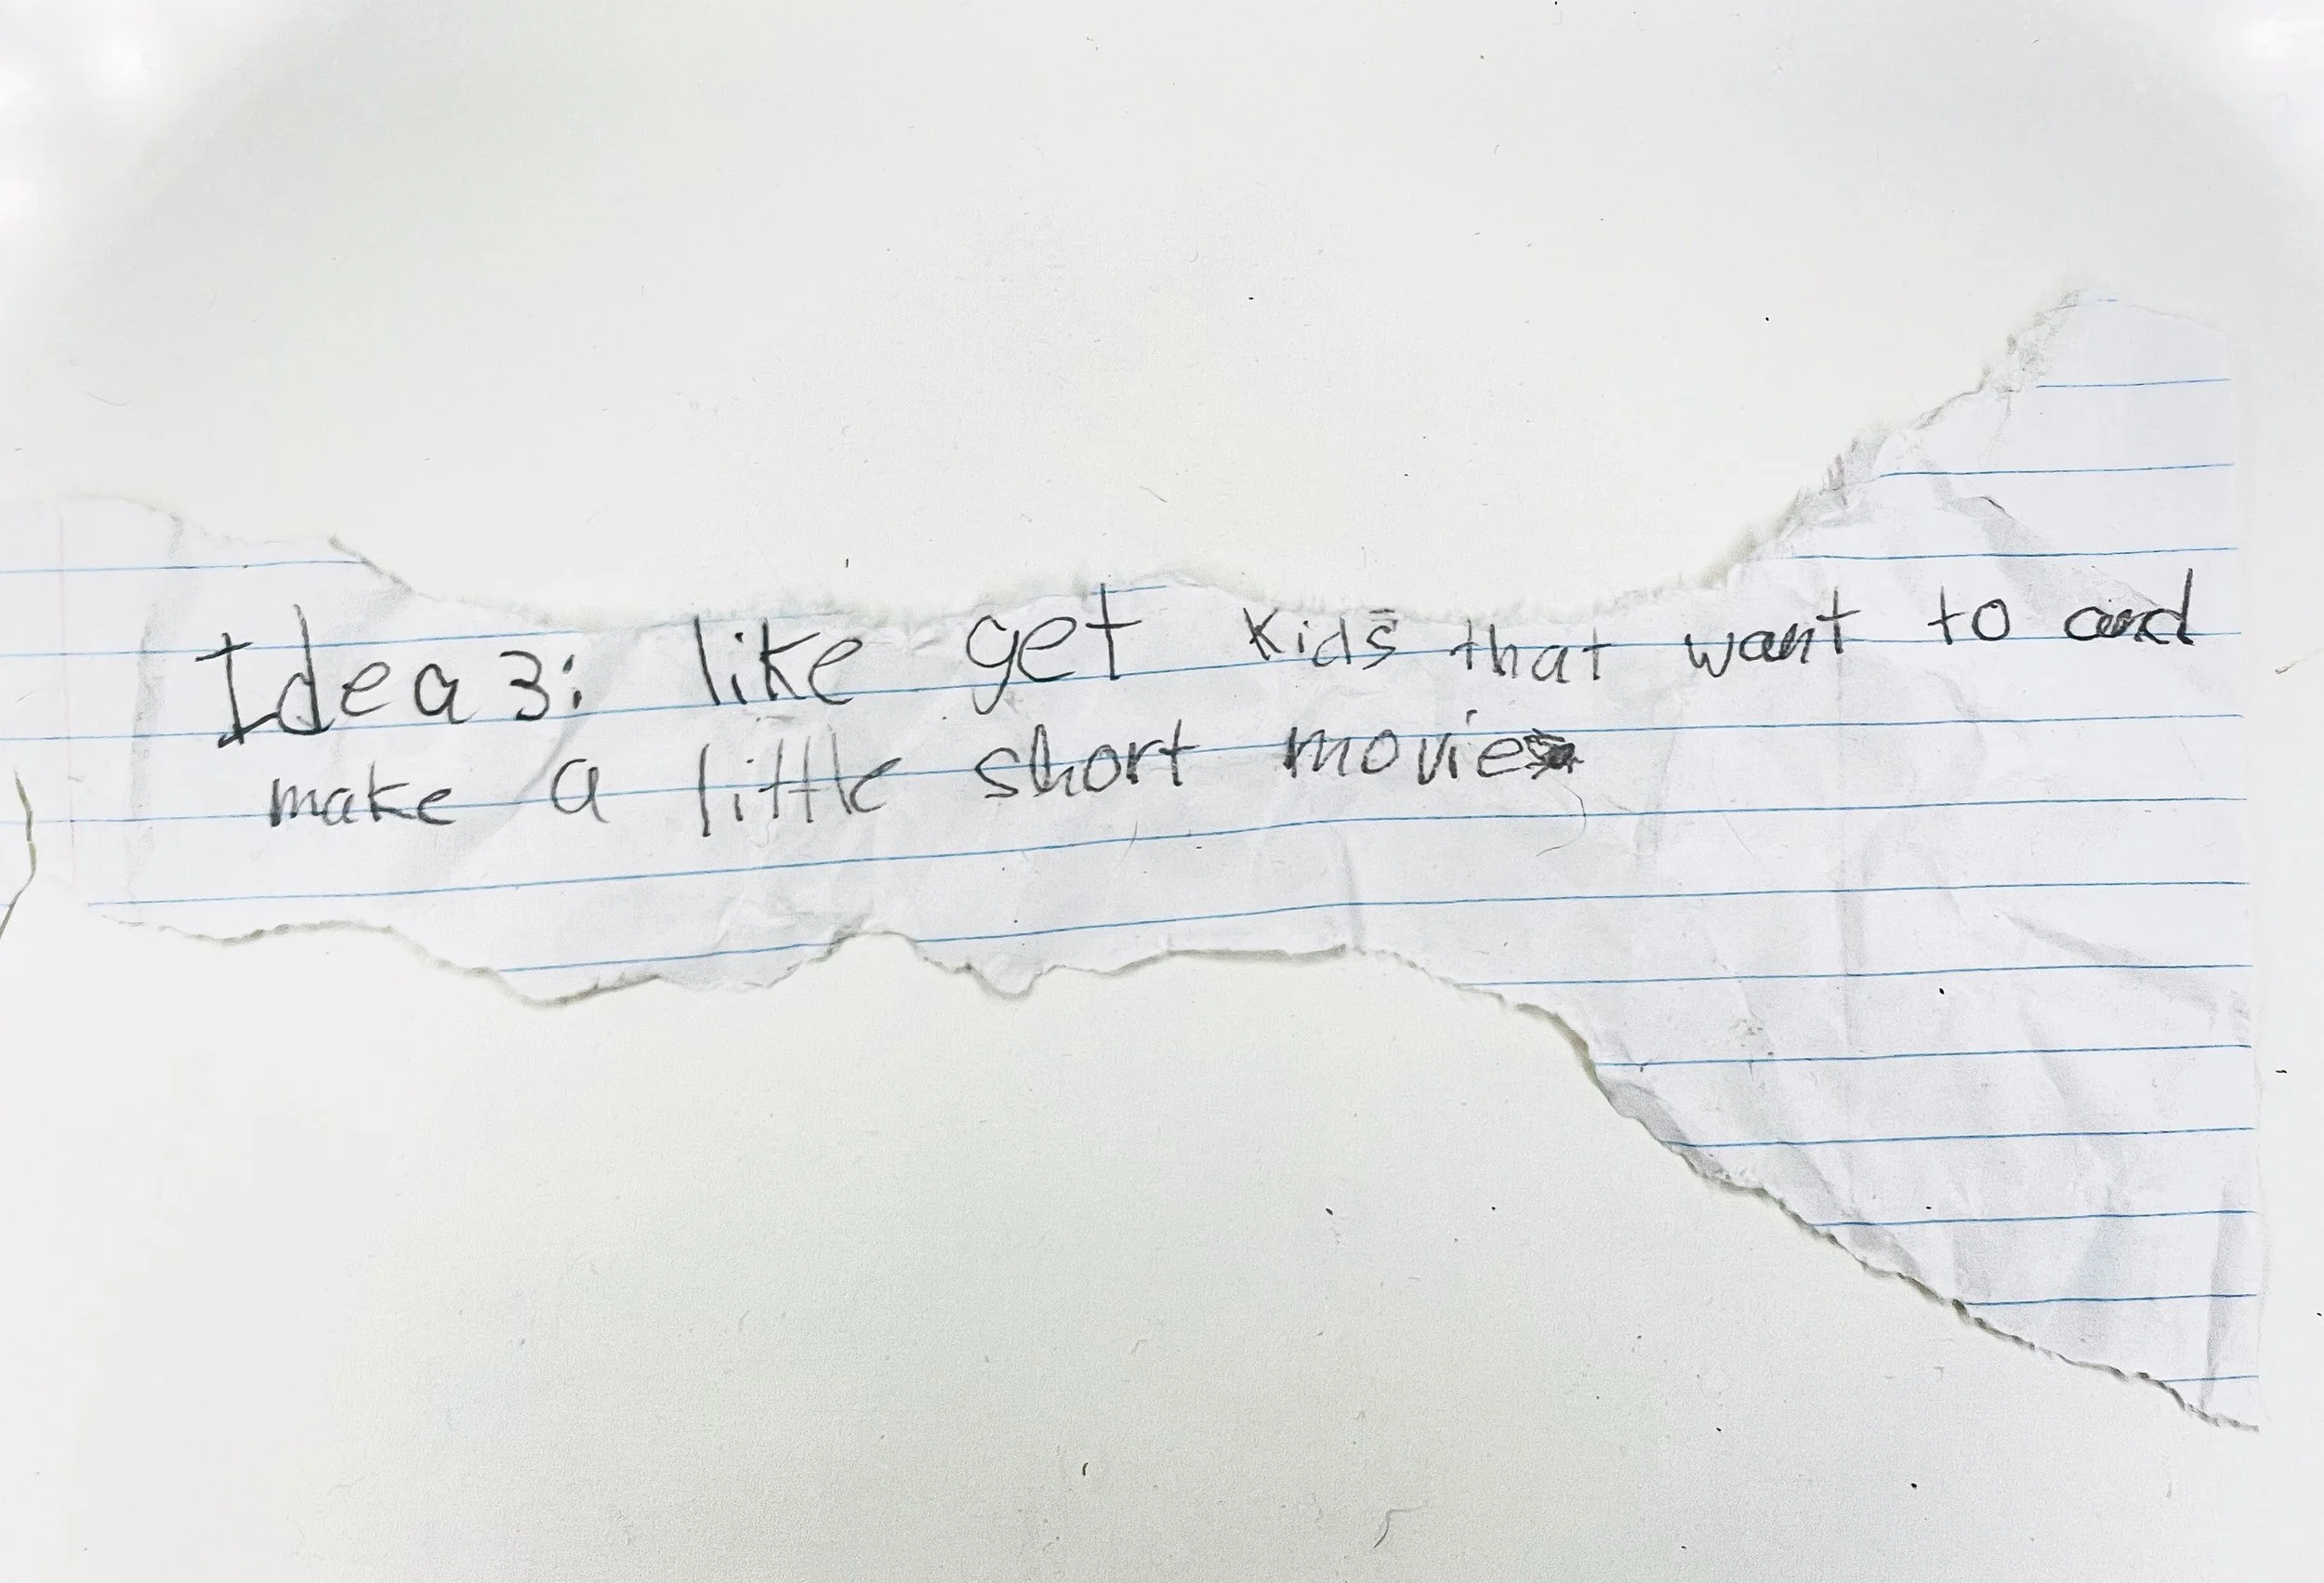 Idea 3: like get kids that want to and
make a little short movie